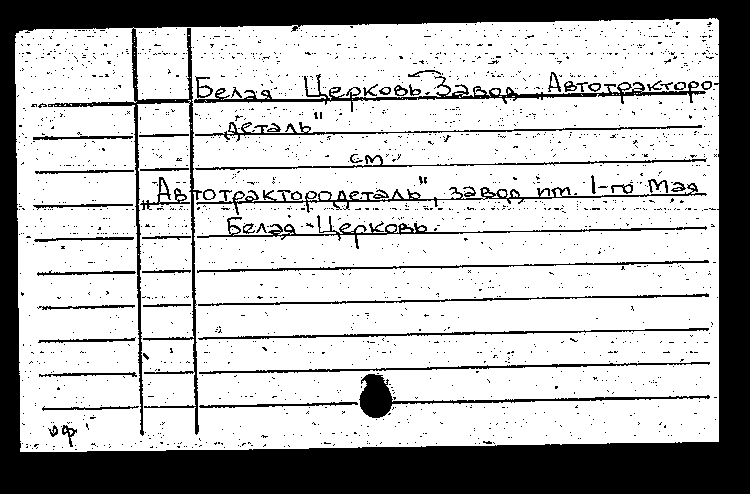 Белая Церковь. Завод „Автотракторо-
деталь"
см.
„Автотрактородеталь", завод пт. 1-го Мая
Белая-Церковь.